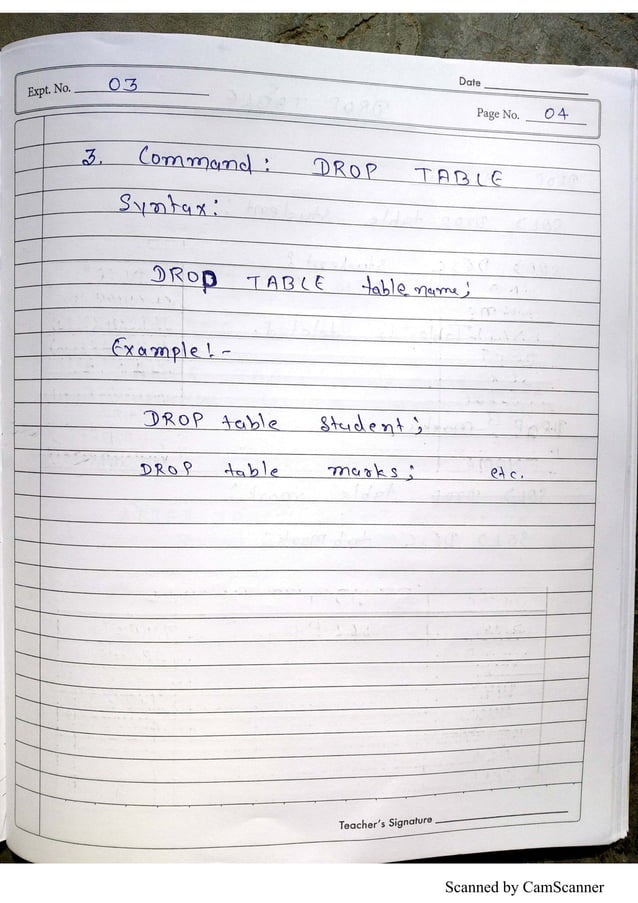 Expt. No. 03
Date
Page No. 04
3. Command: DROP TABLE
Syntax:
DROP TABLE table name;
Example:-
DROP table student;
DROP table marks; etc.
Teacher's Signature
Scanned by CamScanner